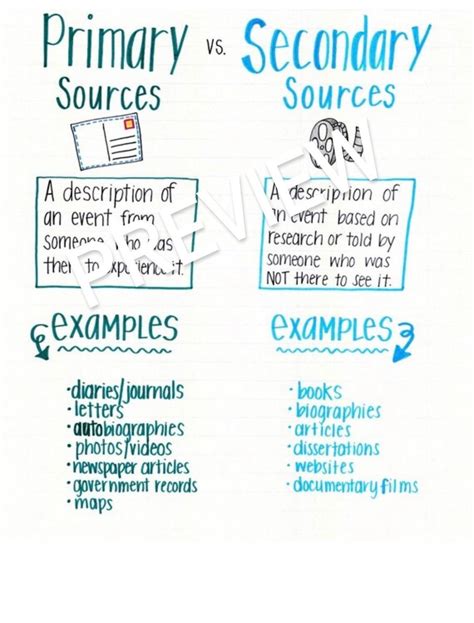 Primary
Sources
vs.
Secondary
Sources
PREVIEW
A description of
an event from
someone who was
there to experience it.
A description of
an event based on
research or told by
someone who was
NOT there to see it.
examples
•diaries/journals
•letters
•autobiographies
•photos/videos
•newspaper articles
•government records
•maps
examples
•books
•biographies
•articles
•dissertations
•websites
•documentary films